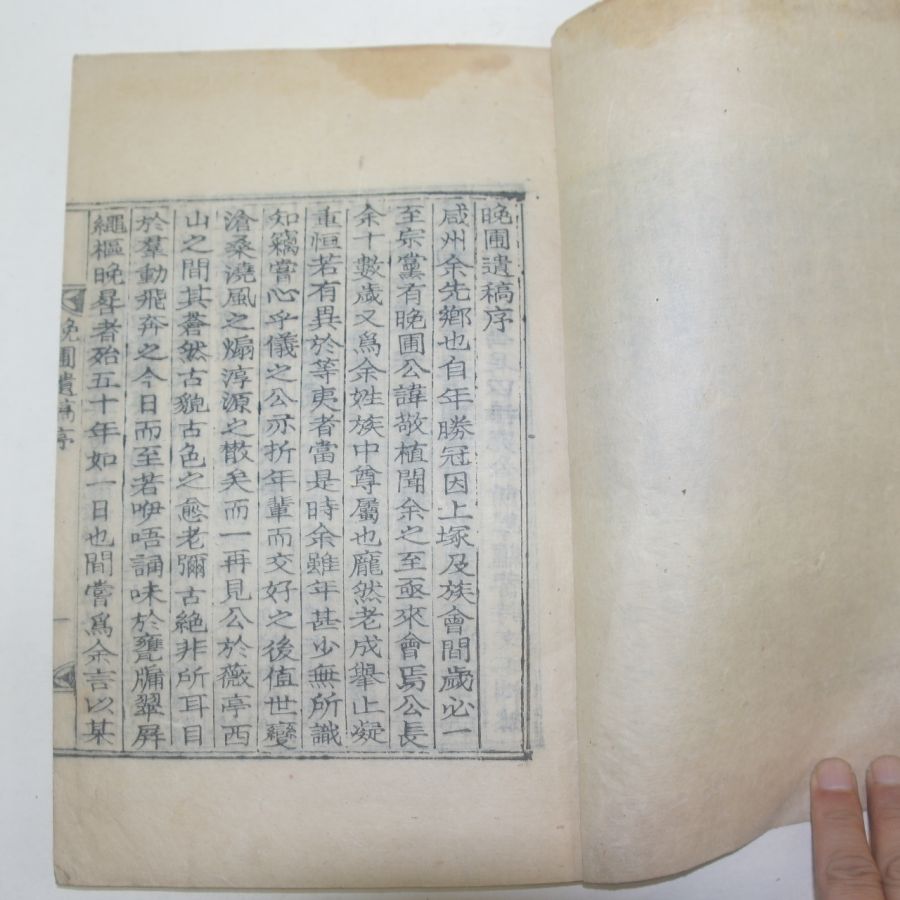 晩圃遺稿序
咸州余先鄕也自年勝冠因上塚及族會間歲必一
至宗黨有晩圃公諱敬植聞余之至亟來會焉公長
余十數歲又爲余姓族中尊屬也龐然老成擧止凝
重恒若有異於等夷者當是時余雖年甚少無所識
知竊嘗心乎儀之公亦折年輩而交好之後値世變
滄桑澆風之煽淳源之散矣而一再見公於薇亭西
山之間其蒼然古貌古色之愈老彌古絶非所耳目
於羣動飛奔之今日而至若咿唔誦味於甕牖翠屛
繩樞晩晷者殆五十年如一日也間嘗爲余言以某
晩圃遺稿序
一